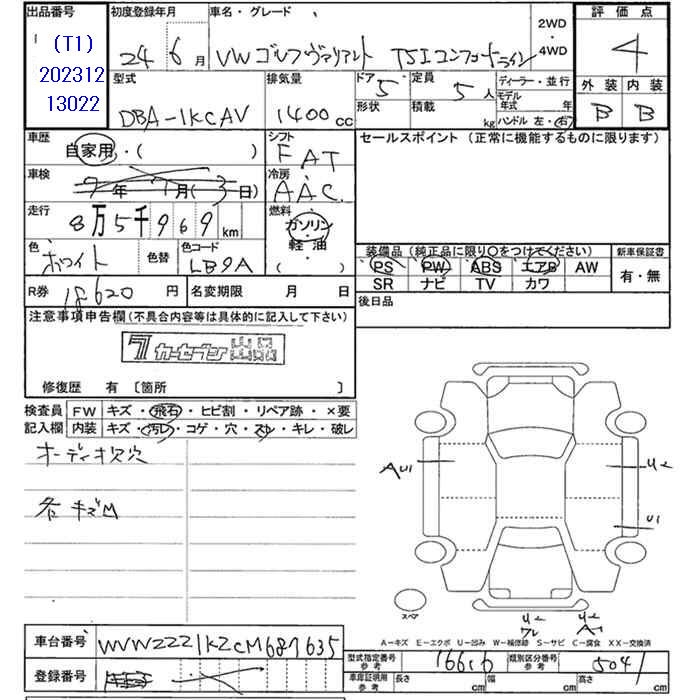 出品番号 初度登録年月 車名・グレード 2WD・4WD 評価点
(T1) 24 6月 VW ゴルフヴァリアント TSIコンフォートライン 4
202312
13022
型式 排気量 ドア 5 定員 5人 ディーラー・並行 外装 内装
DBA-1KCAV 1400cc 形状 積載 kg モデル年式 年 B B
ハンドル 左・右
車歴 シフト セールスポイント (正常に機能するものに限ります)
自家用・( ) FAT
車検 冷房
7年7月(3日) AAC
走行 燃料
8万5千969km ガソリン・軽油
色 色替 色コード ( )
ホワイト LB9A
装備品(純正品に限り○をつけてください) 新車保証書
PS PW ABS エアB AW 有・無
SR ナビ TV カワ
R券 18620円 名変期限 月 日 後日品
注意事項申告欄(不具合内容等は具体的に記入して下さい)
カーセブン
修復歴 有 〔箇所 〕
検査員 FW キズ・飛石・ヒビ割・リペア跡・×要
記入欄 内装 キズ・汚レ・コゲ・穴・スレ・キレ・破レ
オーディオ欠穴
AU1 U2
各キズM
U1
スペア
U2 U2
A1
A-キズ E-エクボ U-凹み W-補修跡 S-サビ C-腐食 XX-交換済
車台番号 WVWZZZ1KZCM687635
型式指定番号 参考 16616 類別区分番号 参考 5041
登録番号 車庫証明用 参考 長さ cm 幅 cm 高さ cm